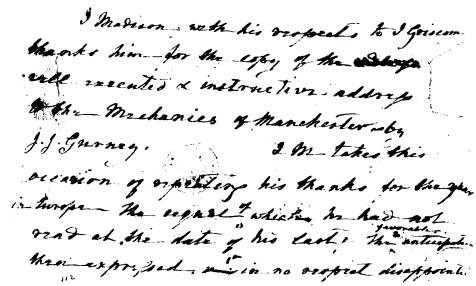 J Madison with his respects to J Griscom
thanks him for the copy of the
well executed & instructive address
to the Mechanics of Manchester by
J. J. Gurney. J. M takes this
occasion of repeating his thanks for the year
in Europe the sequel of which he had not
read at the date of his last; the favorable anticipati
then expressed in no respect disappoint